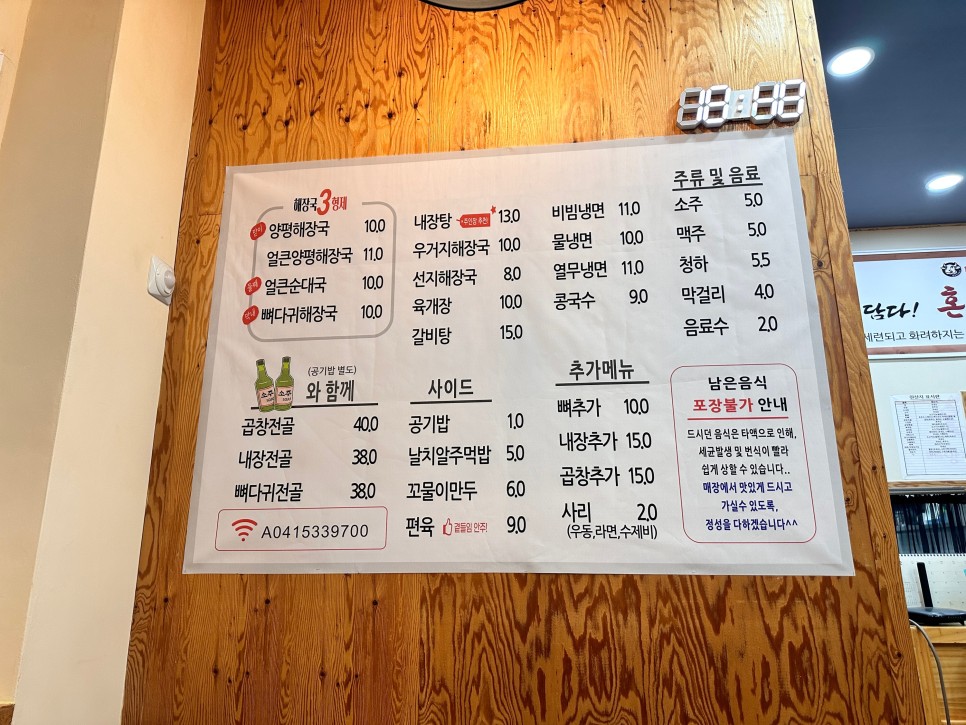 해장국3형제
양평해장국 10,0
얼큰양평해장국 11,0
얼큰순대국 10,0
뼈다귀해장국 10,0
내장탕 주인장 추천! 13,0
우거지해장국 10,0
선지해장국 8,0
육개장 10,0
갈비탕 15,0
비빔냉면 11,0
물냉면 10,0
열무냉면 11,0
콩국수 9,0
주류 및 음료
소주 5,0
맥주 5,0
청하 5,5
막걸리 4,0
음료수 2,0
(공기밥 별도)
소주 소주 와 함께
곱창전골 40,0
내장전골 38,0
뼈다귀전골 38,0
A0415339700
사이드
공기밥 1,0
날치알주먹밥 5,0
꼬물이만두 6,0
편육 곁들임 안주! 9,0
추가메뉴
뼈추가 10,0
내장추가 15,0
곱창추가 15,0
사리 2,0
(우동,라면,수제비)
남은음식
포장불가 안내
드시던 음식은 타액으로 인해,
세균발생 및 번식이 빨라
쉽게 상할 수 있습니다..
매장에서 맛있게 드시고
가실수 있도록,
정성을 다하겠습니다^^
담다! 혼
세련되고 화려하지는